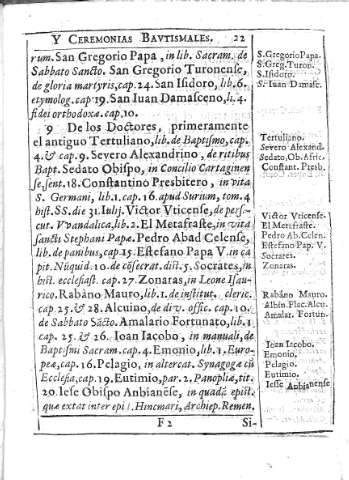 Y CEREMONIAS BAVTISMALES. 22
rum. San Gregorio Papa, in lib. Sacram. de
Sabbato Sancto. San Gregorio Turonense,
de gloria martyris, cap. 24. San Isidoro, lib. 6.
etymolog. cap. 19. San Iuan Damasceno, li. 4.
fidei orthodoxa. cap. 10.
9 De los Doctores, primeramente
el antiguo Tertuliano, lib. de Baptismo, cap.
4. & cap. 9. Severo Alexandrino, de ritibus
Bapt. Sedato Obispo, in Concilio Cartaginen
se, sent. 18. Constantino Presbitero, in vita
S. Germani, lib. 1. cap. 16. apud Surium, tom. 4
hist. SS. die 31. Iulij. Victor Vticense, de perse-
cut. Vvandalica, lib. 2. El Metafraste, in vita
sancti Stephani Papæ. Pedro Abad Celense,
lib. de panibus, cap. 15. Estefano Papa V. in ca
pit. Núquid. 10. de cōsecrat. dist. 5. Socrates, in
hist. ecclesiast. cap. 27. Zonaras, in Leone Isau-
rico. Rabàno Mauro, lib. 1. de institut. cleric.
cap. 25. & 28. Alcuino, de div. offic. cap. 10.
de Sabbato Sācto. Amalario Fortunato, lib. 1
cap. 25. & 26. Ioan Iacobo, in manuali, de
Baptismi Sacram. cap. 4. Emonio, lib. 1. Euro-
peæ, cap. 16. Pelagio, in altercat. Synagogæ cū
Ecclesia, cap. 19. Eutimio, par. 2. Panopliæ, tit.
20. Iesse Obispo Anbianēse, in quadā epist.
quæ extat inter epi Hincmari, Archiep. Remen.
F 2 Si-
S. Gregorio Papa.
S. Greg. Turon.
S. Isidoro.
S. Iuan Damasc.
Tertuliano.
Severo Alexand.
Sedato, Ob. Afric.
Constant. Presb.
Victor Vticense.
El Metafraste.
Pedro Ab. Celen.
Estefano Pap. V.
Socrates.
Zonaras.
Rabàno Mauro.
Albin. Flac. Alcu.
Amalar. Fortun.
Ioan Iacobo.
Emonio.
Pelagio.
Eutimio.
Iesse Anbianense